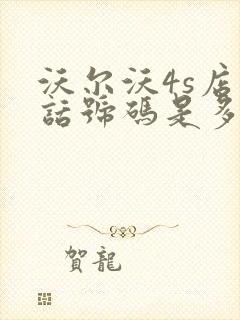 沃尔沃4s店
話號碼是多
賀龍